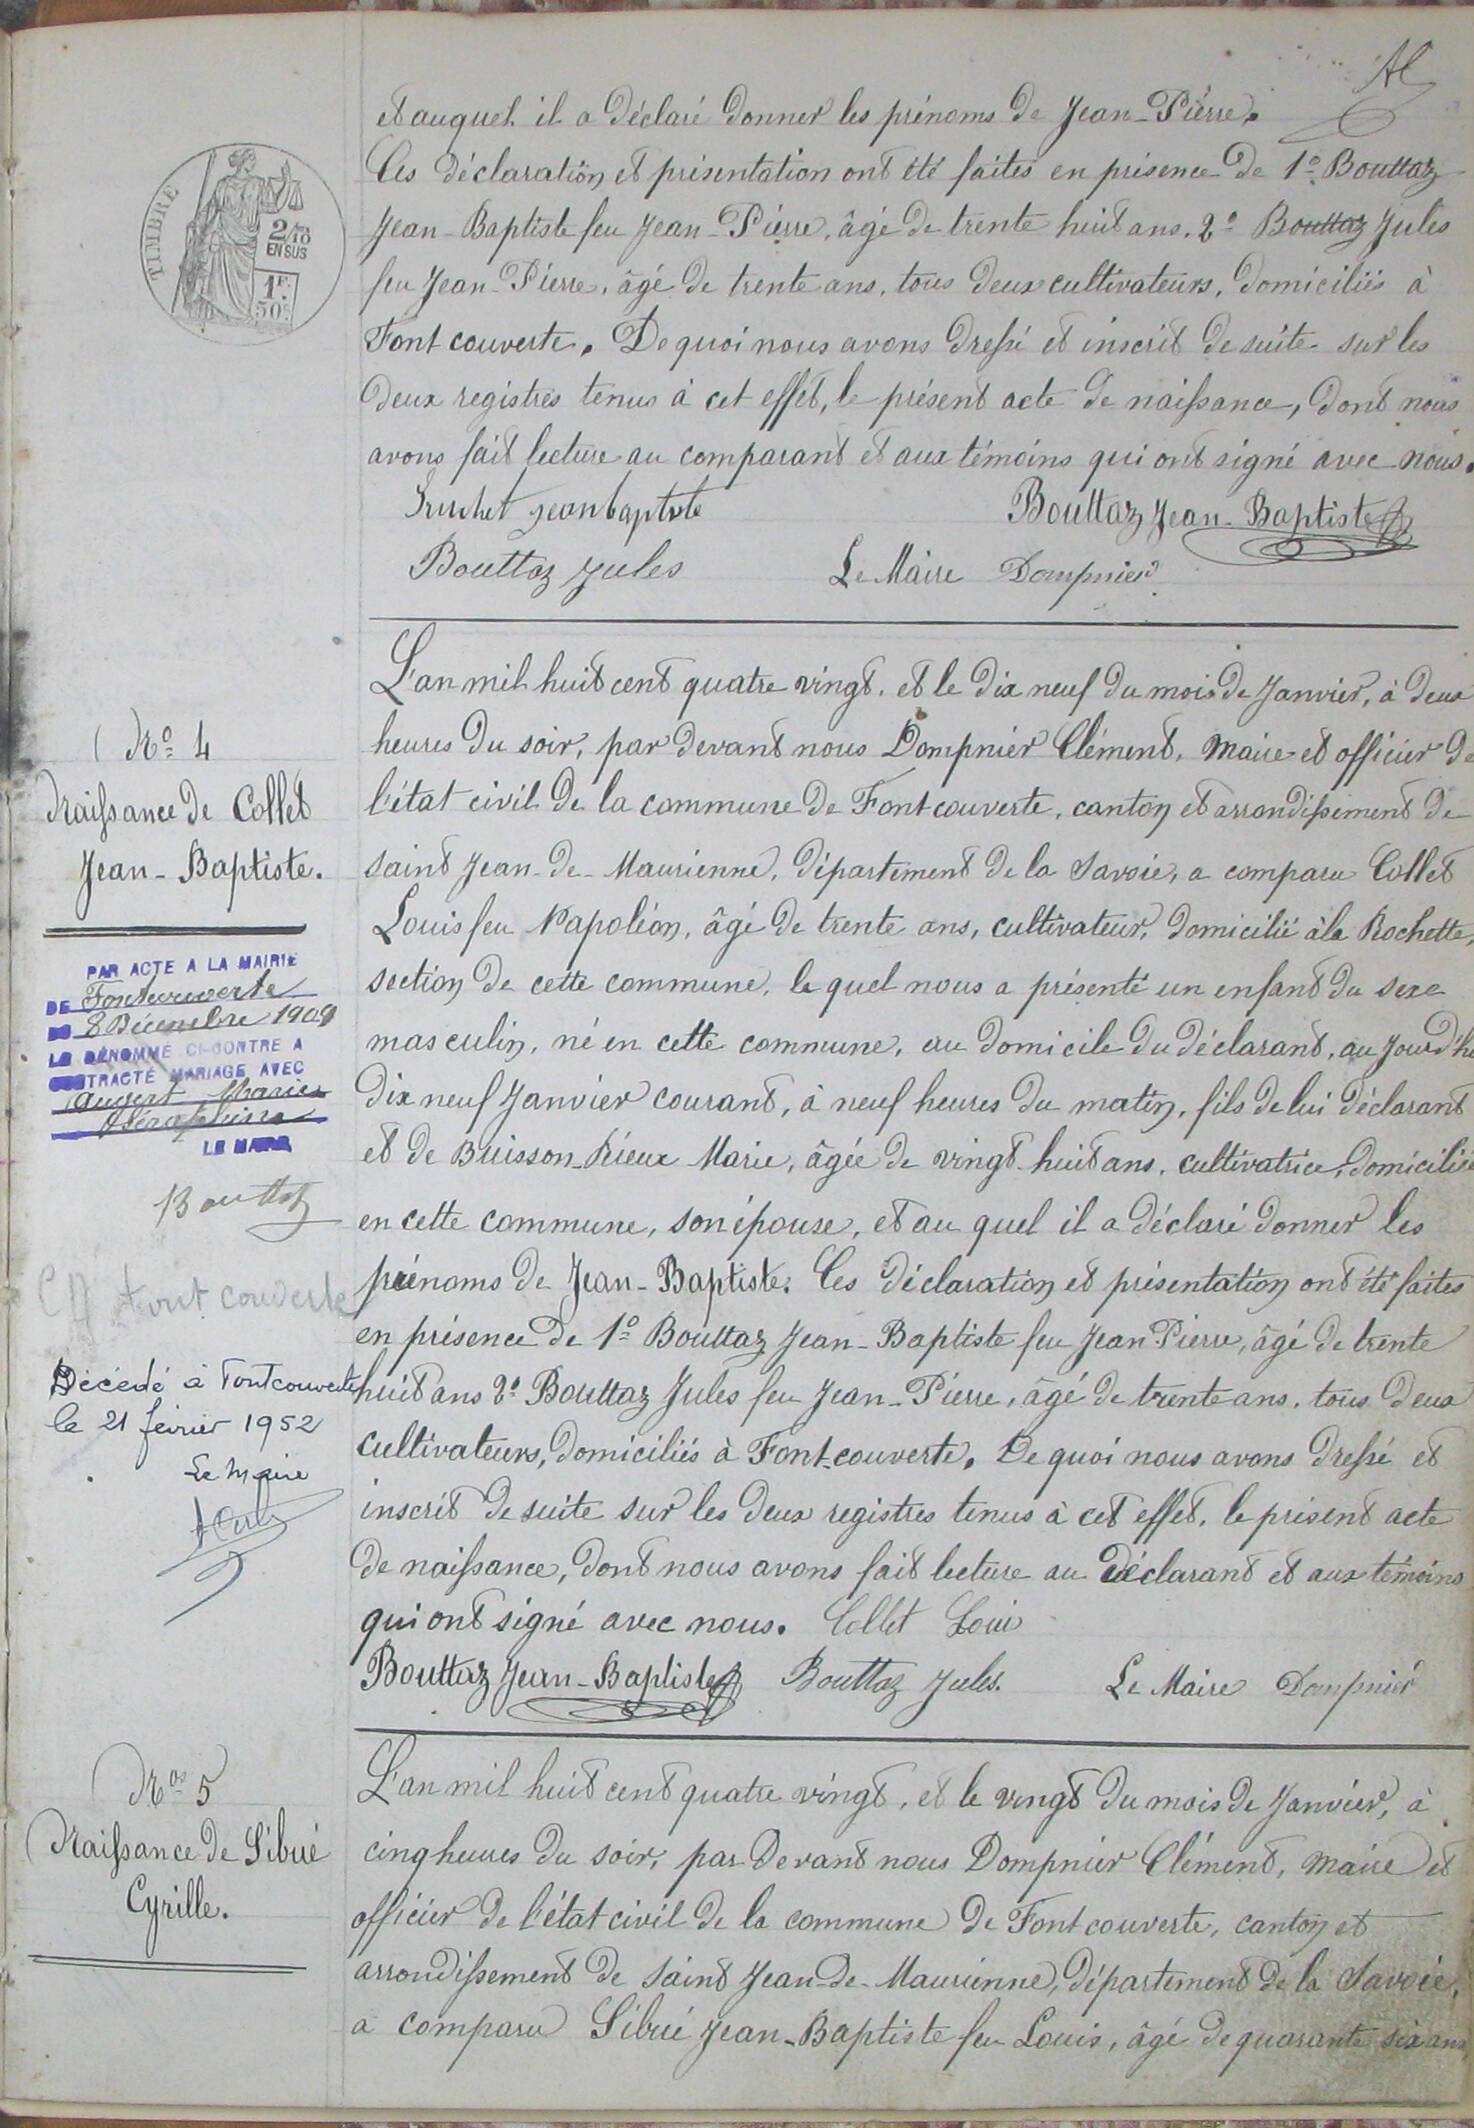 et auquel il a déclaré donner les prénoms de Jean-Pierre.
Ces déclaration et présentation ont été faites en présence de 1º Bouttaz
Jean-Baptiste feu Jean-Pierre, âgé de trente huit ans, 2º Bouttaz Jules
feu Jean-Pierre, âgé de trente ans, tous deux cultivateurs, domiciliés à
Fontcouverte. De quoi nous avons dressé et inscrit de suite sur les
deux registres tenus à cet effet, le présent acte de naissance, dont nous
avons fait lecture au comparant et aux témoins qui ont signé avec nous.
Truchet jean baptiste Bouttaz Jean-Baptiste
Bouttaz Jules Le Maire Dompnier
TIMBRE
2/10
EN SUS
1F.
50c.
Nº 4
Naissance de Collet
Jean-Baptiste.
PAR ACTE A LA MAIRIE
DE Fontcouverte
DU 8 Décembre 1908
LE DÉNOMMÉ CI-CONTRE A
CONTRACTÉ MARIAGE AVEC
Augert Marie
Séraphine
LE MAIRE,
Bouttaz
Fontcouverte
Décédé à Fontcouverte
le 21 février 1952
Le Maire
L'an mil huit cent quatre vingt, et le dix neuf du mois de Janvier, à deux
heures du soir, par devant nous Dompnier Clément, Maire et officier de
l'état civil de la commune de Fontcouverte, canton et arrondissement de
saint Jean-de-Maurienne, département de la Savoie, a comparu Collet
Louis feu Napoléon, âgé de trente ans, cultivateur, domicilié à la Rochette,
section de cette commune, le quel nous a présenté un enfant du sexe
masculin, né en cette commune, au domicile du déclarant, au jourd'hui
dix neuf Janvier courant, à neuf heures du matin, fils de lui déclarant
et de Buisson-Rieux Marie, âgée de vingt-huit ans, cultivatrice, domiciliée
en cette commune, son épouse, et au quel il a déclaré donner les
prénoms de Jean-Baptiste. Ces déclaration et présentation ont été faites
en présence de 1º Bouttaz Jean-Baptiste feu Jean Pierre, âgé de trente
huit ans 2º Bouttaz Jules feu Jean-Pierre, âgé de trente ans, tous deux
cultivateurs, domiciliés à Font-couverte. De quoi nous avons dressé et
inscrit de suite sur les deux registres tenus à cet effet, le présent acte
de naissance, dont nous avons fait lecture au déclarant et aux témoins
qui ont signé avec nous. Collet Loui
Bouttaz Jean-Baptiste Bouttaz Jules. Le Maire Dompnier
Nos 5
Naissance de Sibué
Cyrille.
L'an mil huit cent quatre vingt, et le vingt du mois de Janvier, à
cinq heures du soir, par devant nous Dompnier Clément, maire et
officier de l'état civil de la commune de Fontcouverte, canton et
arrondissement de Saint Jean-de-Maurienne, département de la Savoie,
a comparu Sibué Jean-Baptiste feu Louis, âgé de quarante six ans